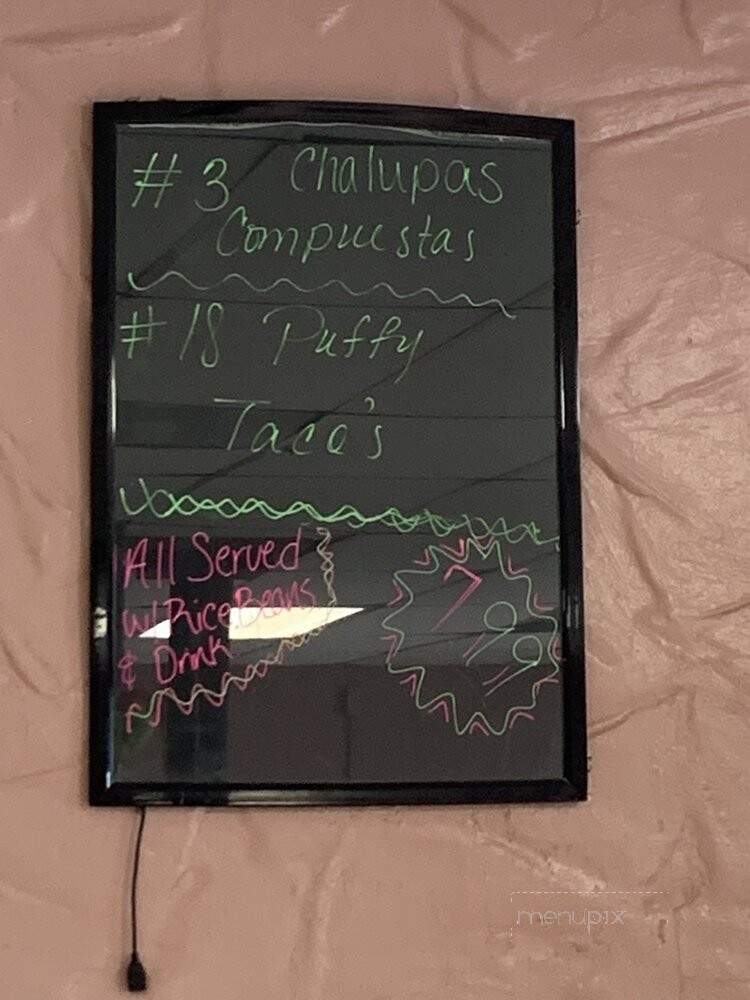 #3 Chalupas
Compuestas
#18 Puffy
Taco's
All Served
w/ Rice Beans
& Drink
7 99
menupix